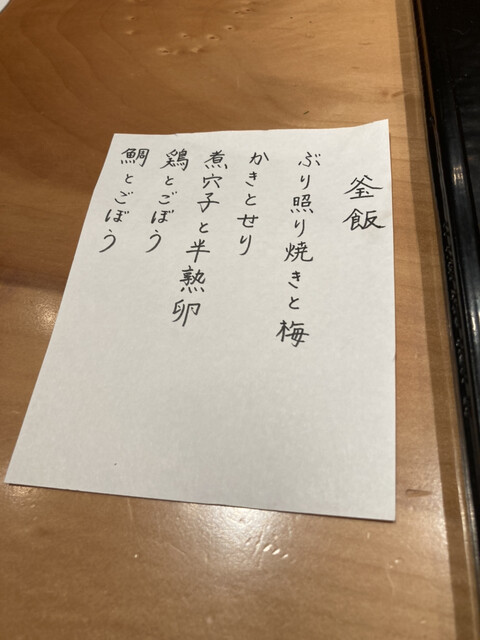 釜飯
ぶり照り焼きと梅
かきとせり
煮穴子と半熟卵
鶏とごぼう
鯛とごぼう